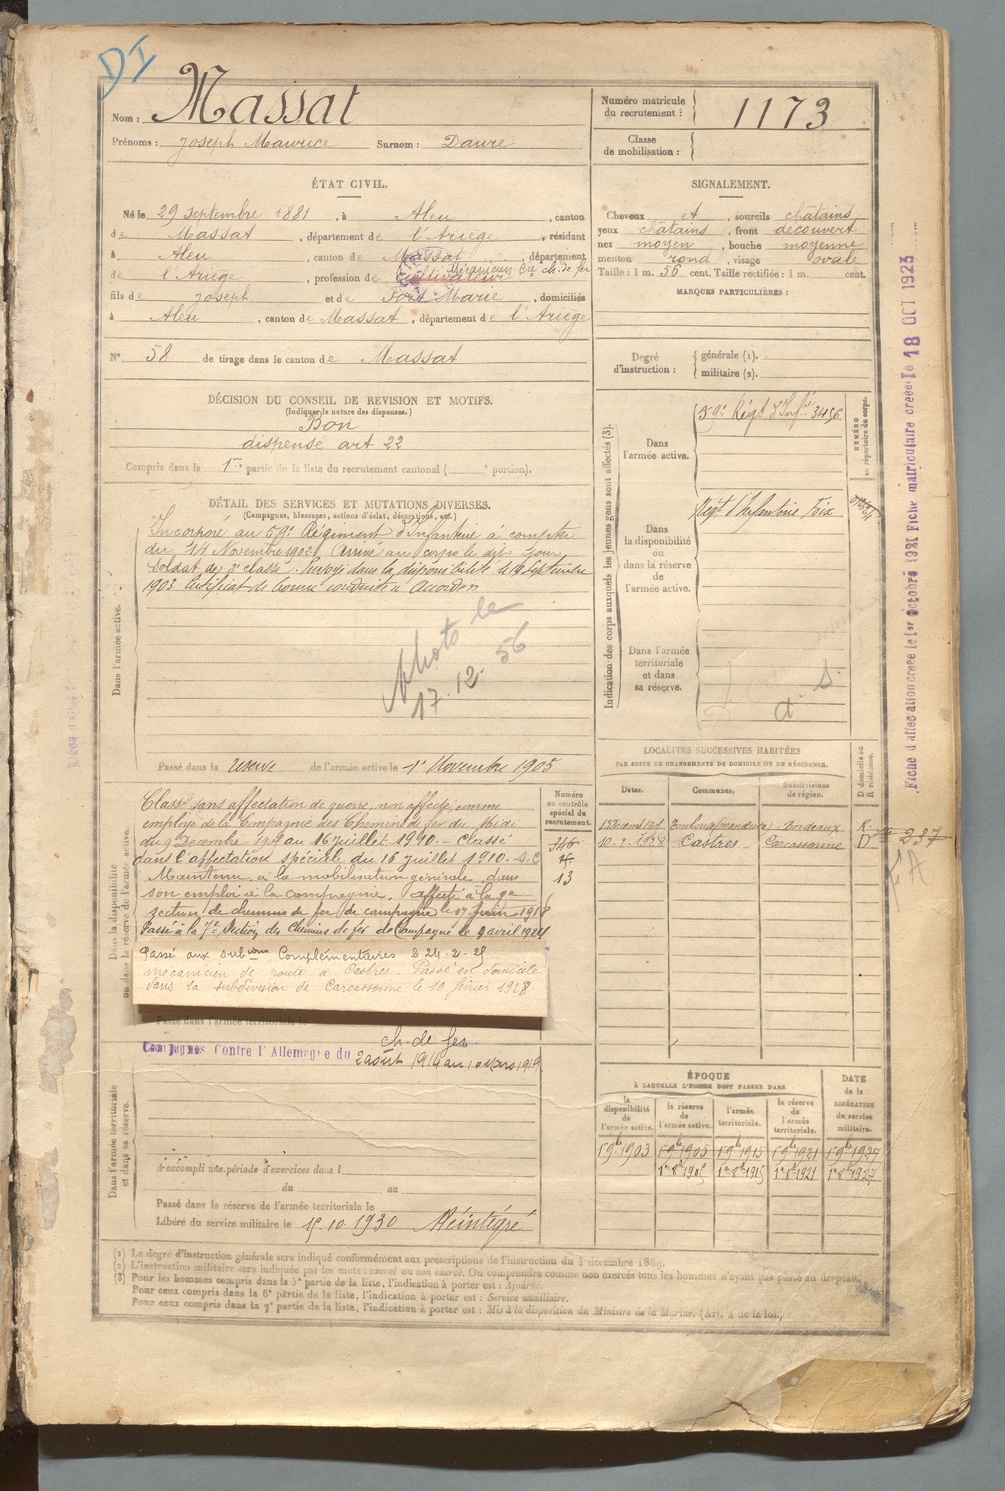 DI
Nom : Massat
Prénoms : Joseph Maurice Surnom : Daure
Numéro matricule du recrutement : 1173
Classe de mobilisation :
ÉTAT CIVIL.
Né le 29 septembre 1881, à Aleu, canton
de Massat, département de l'Ariège, résidant
à Aleu, canton de Massat, département
de l'Ariège, profession de cultivateur Mécanicien Cie ch. de fer
fils de Joseph et de Fort Marie, domiciliés
à Aleu, canton de Massat, département de l'Ariège
N° 58 de tirage dans le canton de Massat
SIGNALEMENT.
Cheveux et, sourcils châtains
yeux châtains, front découvert
nez moyen, bouche moyenne
menton rond, visage ovale
Taille : 1 m. 56 cent. Taille rectifiée : 1 m. cent.
MARQUES PARTICULIÈRES :
Degré d'instruction : générale (1).
militaire (2).
DÉCISION DU CONSEIL DE REVISION ET MOTIFS.
(Indiquer la nature des dispenses.)
Bon
dispense art 22
Compris dans la 1re partie de la liste du recrutement cantonal ( e portion).
DÉTAIL DES SERVICES ET MUTATIONS DIVERSES.
(Campagnes, blessures, actions d'éclat, décorations, etc.)
Dans l'armée active.
Incorporé au 59e Régiment d'Infanterie à compter
du 14 Novembre 1902, Arrivé au corps le dit jour
Soldat de 2e classe. Envoyé dans la disponibilité le Septembre
1903 Certificat de bonne conduite Accordé
Photo le
17.12.56
Passé dans la réserve de l'armée active le 1r Novembre 1905
Indication des corps auxquels les jeunes gens sont affectés (3).
Dans l'armée active.
59e Régt d'Infie 3456
NUMÉRO au répertoire du corps.
Dans la disponibilité ou dans la réserve de l'armée active.
Régt d'Infanterie Foix
Dans l'armée territoriale et dans sa réserve.
Fiche d'affectation créée le 1er Octobre 1921 Fiche matriculaire créée le 18 OCT 1923
Dans la disponibilité ou dans la réserve de l'armée active.
Classé sans affectation de guerre, non affecté, comme
employé de la Compagnie des Chemins de fer du Midi
du 9 Décembre 1909 au 16 juillet 1910. - Classé
dans l'affectation spéciale du 16 juillet 1910. - S.C
Maintenu à la mobilisation générale dans
son emploi à la compagnie. affecté à la 9e
section de chemins de fer de campagne le 17 juin 1918
Passé à la 7e Section des Chemins de fer de Campagne le 9 avril 1924
Passé aux subons Complémentaires le 24-2-25
mécanicien de route à Castres. Passé en domicile
dans la subdivision de Carcassonne le 10 février 1928
Numéro au contrôle spécial du recrutement.
13
Passé dans l'armée territoriale le
Campagnes Contre l'Allemagne du
ch. de fer
2 août 1914 au 10 Mars 1919
LOCALITÉS SUCCESSIVES HABITÉES
PAR SUITE DE CHANGEMENTS DE DOMICILE OU DE RÉSIDENCE.
Dates. Communes. Subdivisions de région. D domicile ou R résidence.
Bordeaux R
10-2-1928 Castres Carcassonne D 237
Dans l'armée territoriale et dans sa réserve.
A accompli une période d'exercices dans l
du au
Passé dans la réserve de l'armée territoriale le
Libéré du service militaire le 15.10.1930 Réintégré
ÉPOQUE
À LAQUELLE L'HOMME DOIT PASSER DANS
la disponibilité de l'armée active.
la réserve de l'armée active.
l'armée territoriale.
la réserve de l'armée territoriale.
DATE de la LIBÉRATION du service militaire.
1r 9bre 1903 1r 9bre 1905 1r 9bre 1915 1r 9bre 1921 1r 9bre 1927
1er 8bre 1905 1er 8bre 1915 1er 8bre 1921 1er 8bre 1927
(1) Le degré d'instruction générale sera indiqué conformément aux prescriptions de l'instruction du 4 décembre 1889.
(2) L'instruction militaire sera indiquée par les mots : exercé ou non exercé. On comprendra comme non exercés tous les hommes n'ayant pas passé au drapeau.
(3) Pour les hommes compris dans la 5e partie de la liste, l'indication à porter est : Ajourné.
Pour ceux compris dans la 6e partie de la liste, l'indication à porter est : Service auxiliaire.
Pour ceux compris dans la 7e partie de la liste, l'indication à porter est : Mis à la disposition du Ministre de la Marine. (Art. 4 de la loi.)